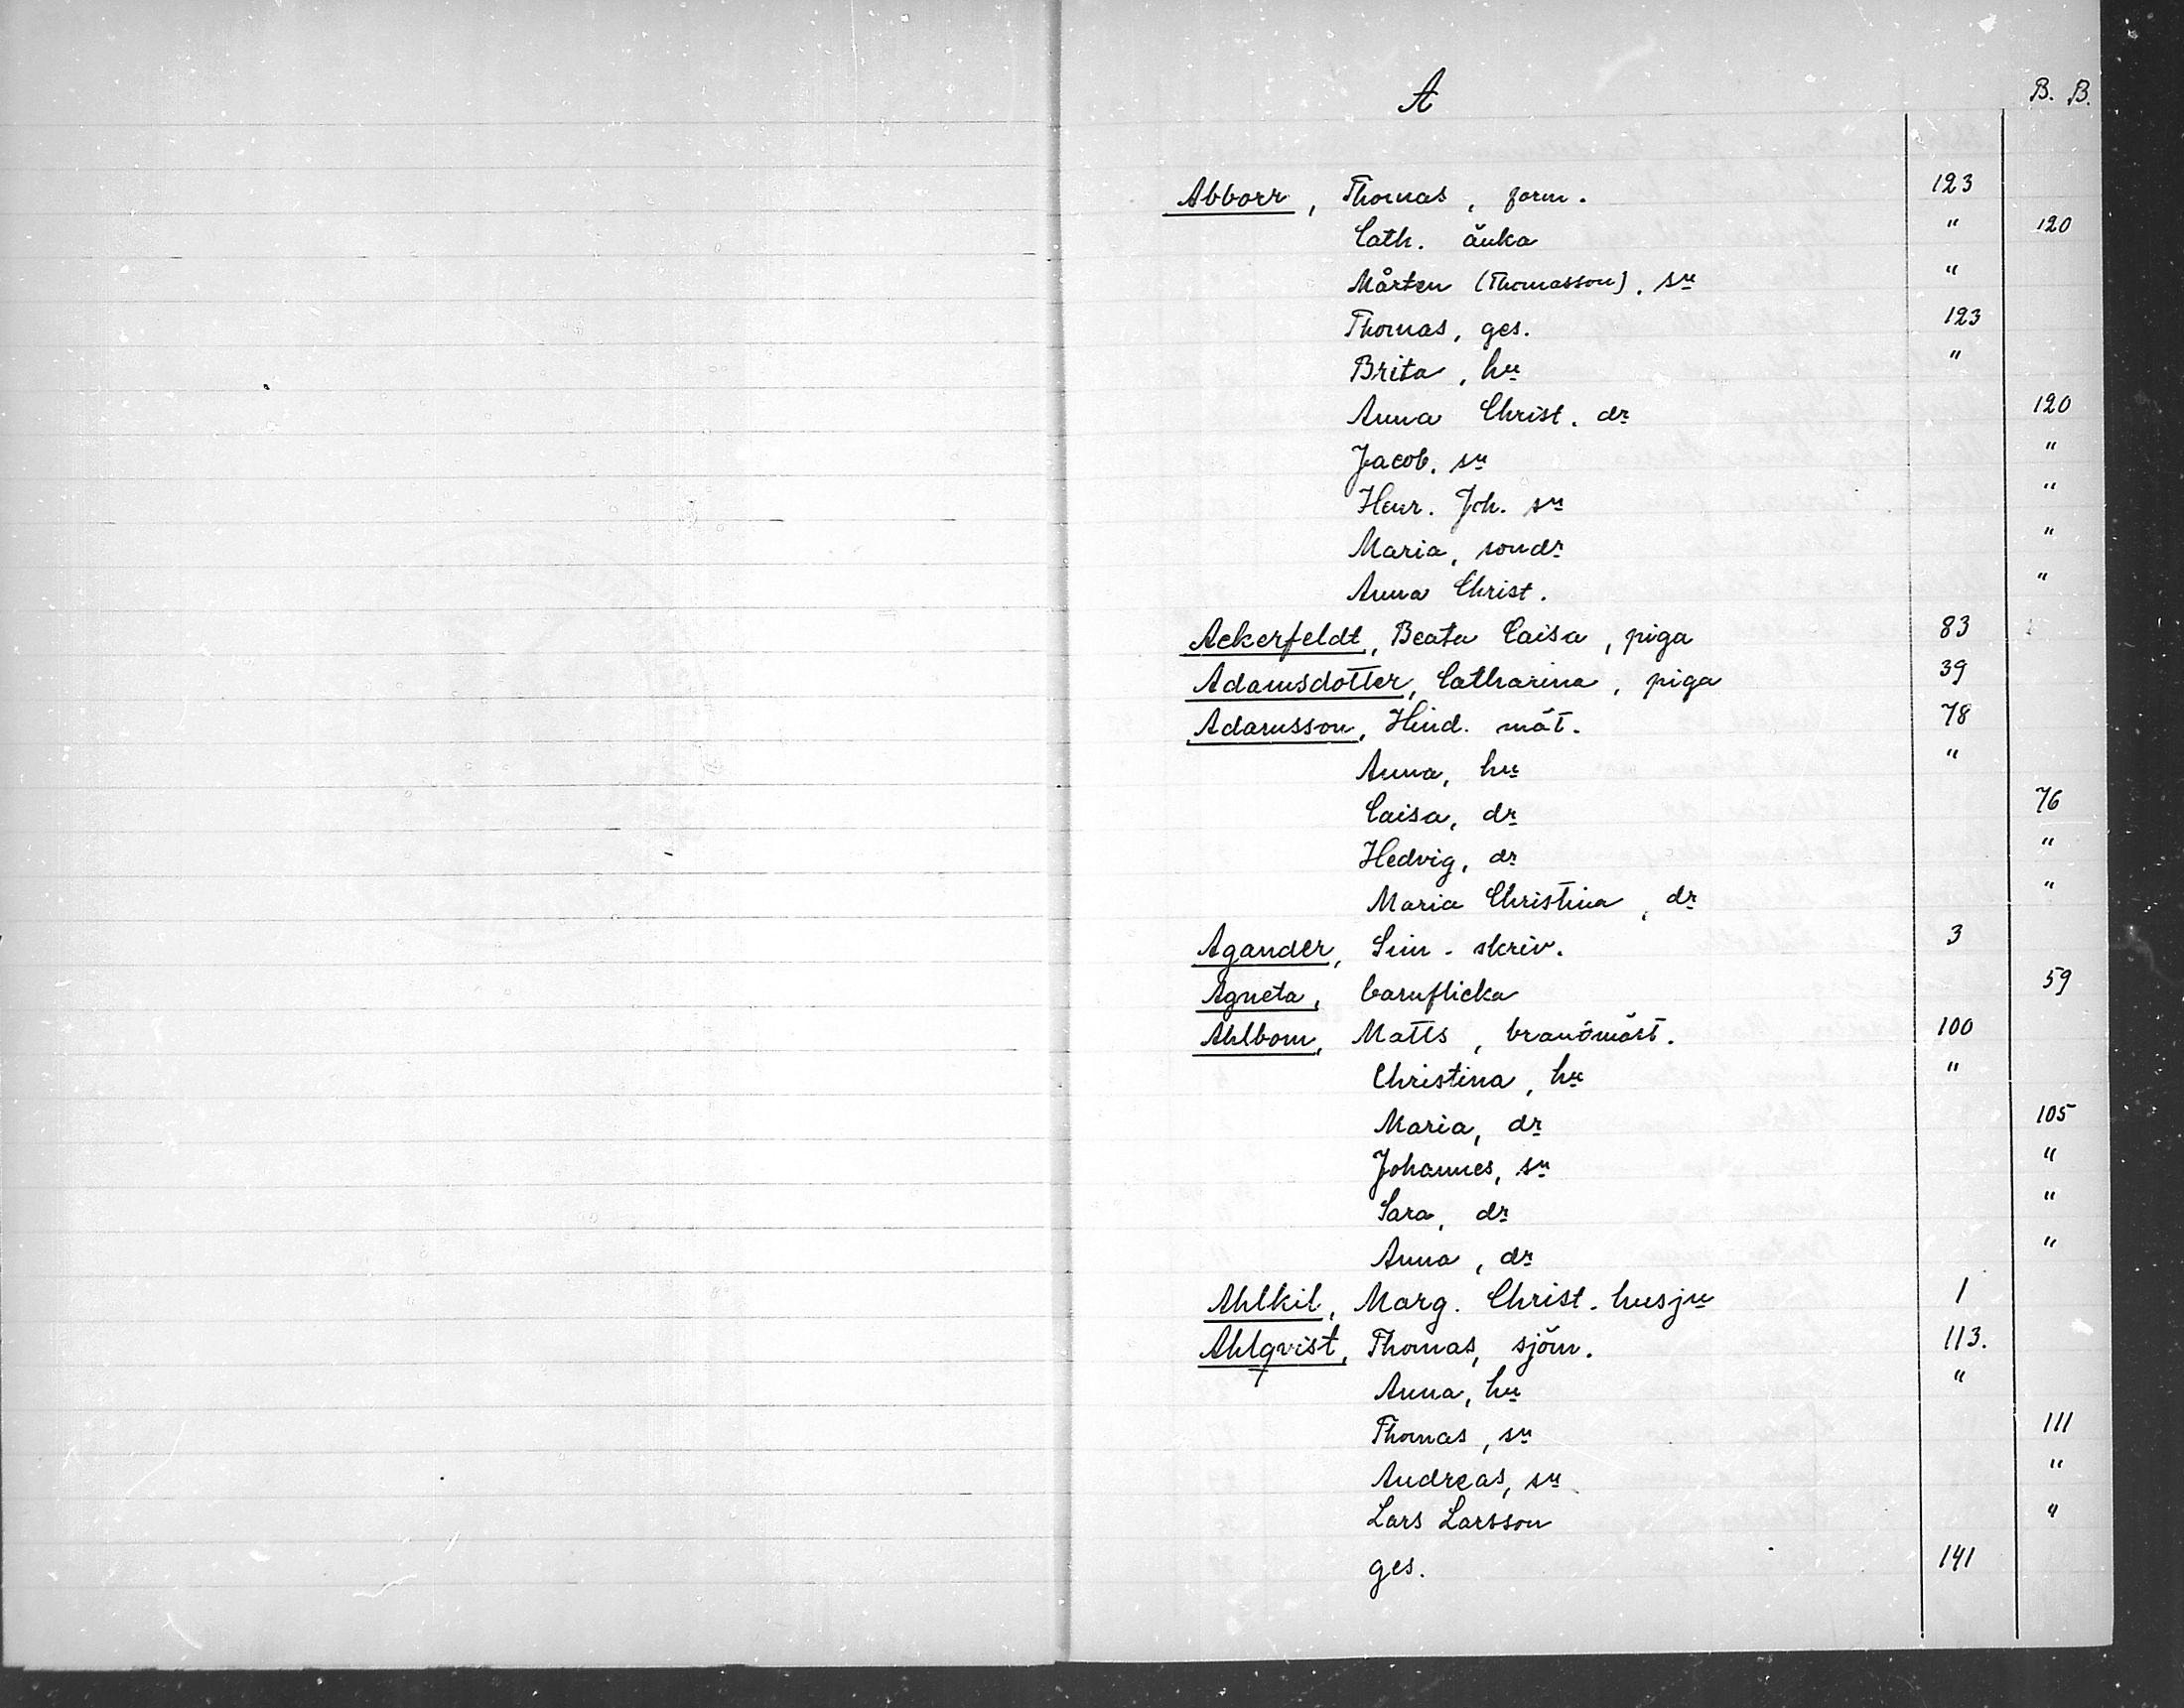 A
B. B.
Abborr, Thomas, form. 123
Cath. änka " 120
Mårten (Thomasson), sn "
Thomas, ges. 123
Brita, hu "
Anna Christ. dr 120
Jacob, sn "
Henr. Joh. sn "
Maria, sondr "
Anna Christ. "
Ackerfeldt, Beata Caisa, piga 83
Adamsdotter, Catharina, piga 39
Adamsson, Hind. mät. 78
Anna, hu "
Caisa, dr 76
Hedvig, dr "
Maria Christina, dr "
Agander, Sim. skriv. 3
Agneta, barnflicka 59
Ahlbom, Matts, brandmäst. 100
Christina, hu "
Maria, dr 105
Johannes, sn "
Sara, dr "
Anna, dr "
Ahlkil, Marg. Christ. husjn 1
Ahlqvist, Thomas, sjöm. 113.
Anna, hu "
Thomas, sn 111
Andreas, sn "
Lars Larsson "
ges. 141